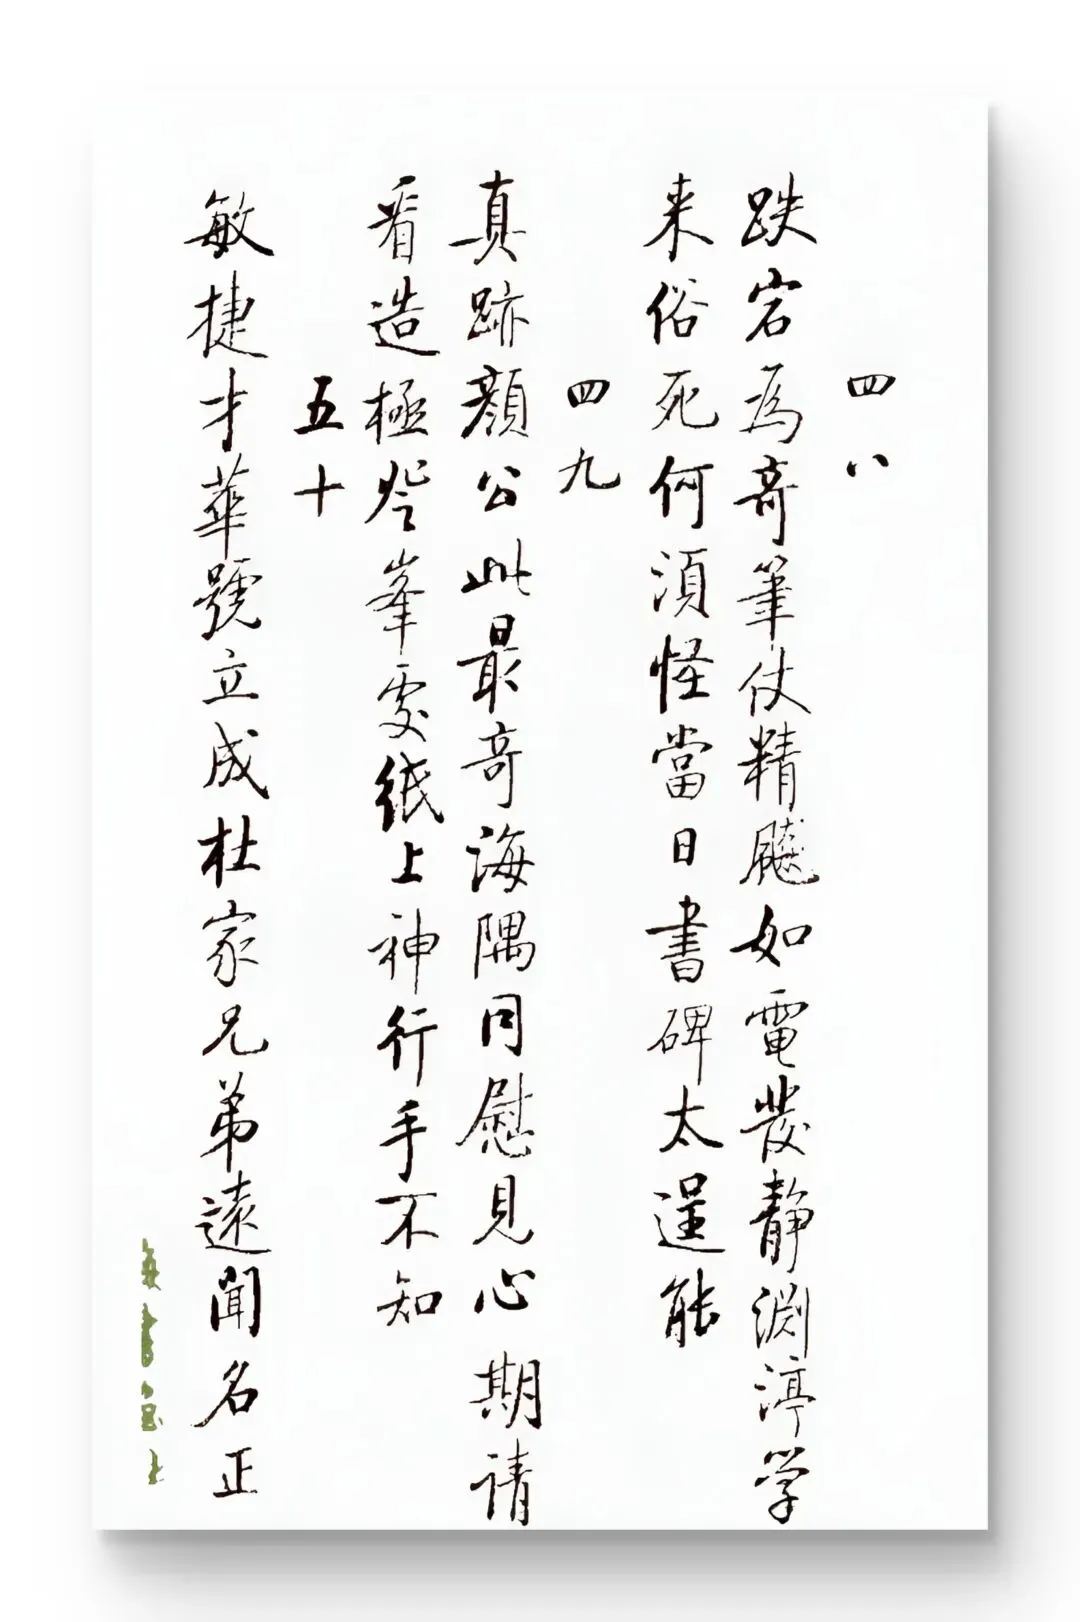 四八
跌宕為奇筆仗精飈如電發静淵渟学
来俗死何須怪當日書碑太逞能
四九
真跡顏公此最奇海隅同慰見心期请
看造極登峯處纸上神行手不知
五十
敏捷才華號立成杜家兄弟遠聞名正